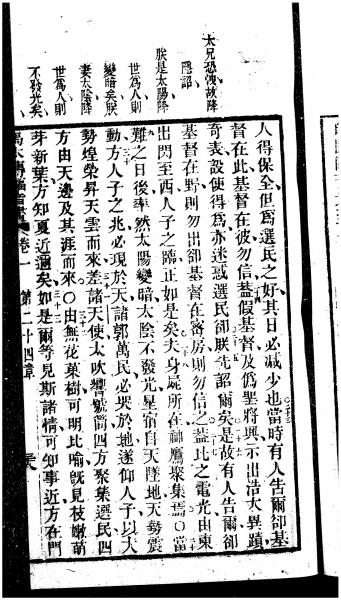 人得保全但爲選民之好其日必減少也當時有人告爾卻基
督在此基督在彼勿信葢假基督及僞聖將興示出浩大異蹟
奇表設使得爲亦迷惑選民卻朕先詔爾矣是故有人告爾卻
基督在野則勿出卻基督在密房則勿信之葢比之電光由東
出閃至西人子之臨正如是矣夫身屍所在神鷹聚集焉〇當
難之日後率然太陽變暗太陰不發光星宿自天墜地天勢震
動方人子之兆必現於天諸郭萬民必哭於地遂仰人子以大
勢煌榮昇天雲而來差諸天使太吹響號筒四方聚集選民四
方由天邊及其涯而來〇由無花菓樹可明比喻旣見枝嫩萌
芽新葉方知夏近邇矣如是爾等見斯諸情可知事近方在門
太兄恐陳故降
隱詔
朕是太陽降
世爲人則
變暗矣朕
妻太陰降
世爲人則
不發光矣
卷一
第二十四章